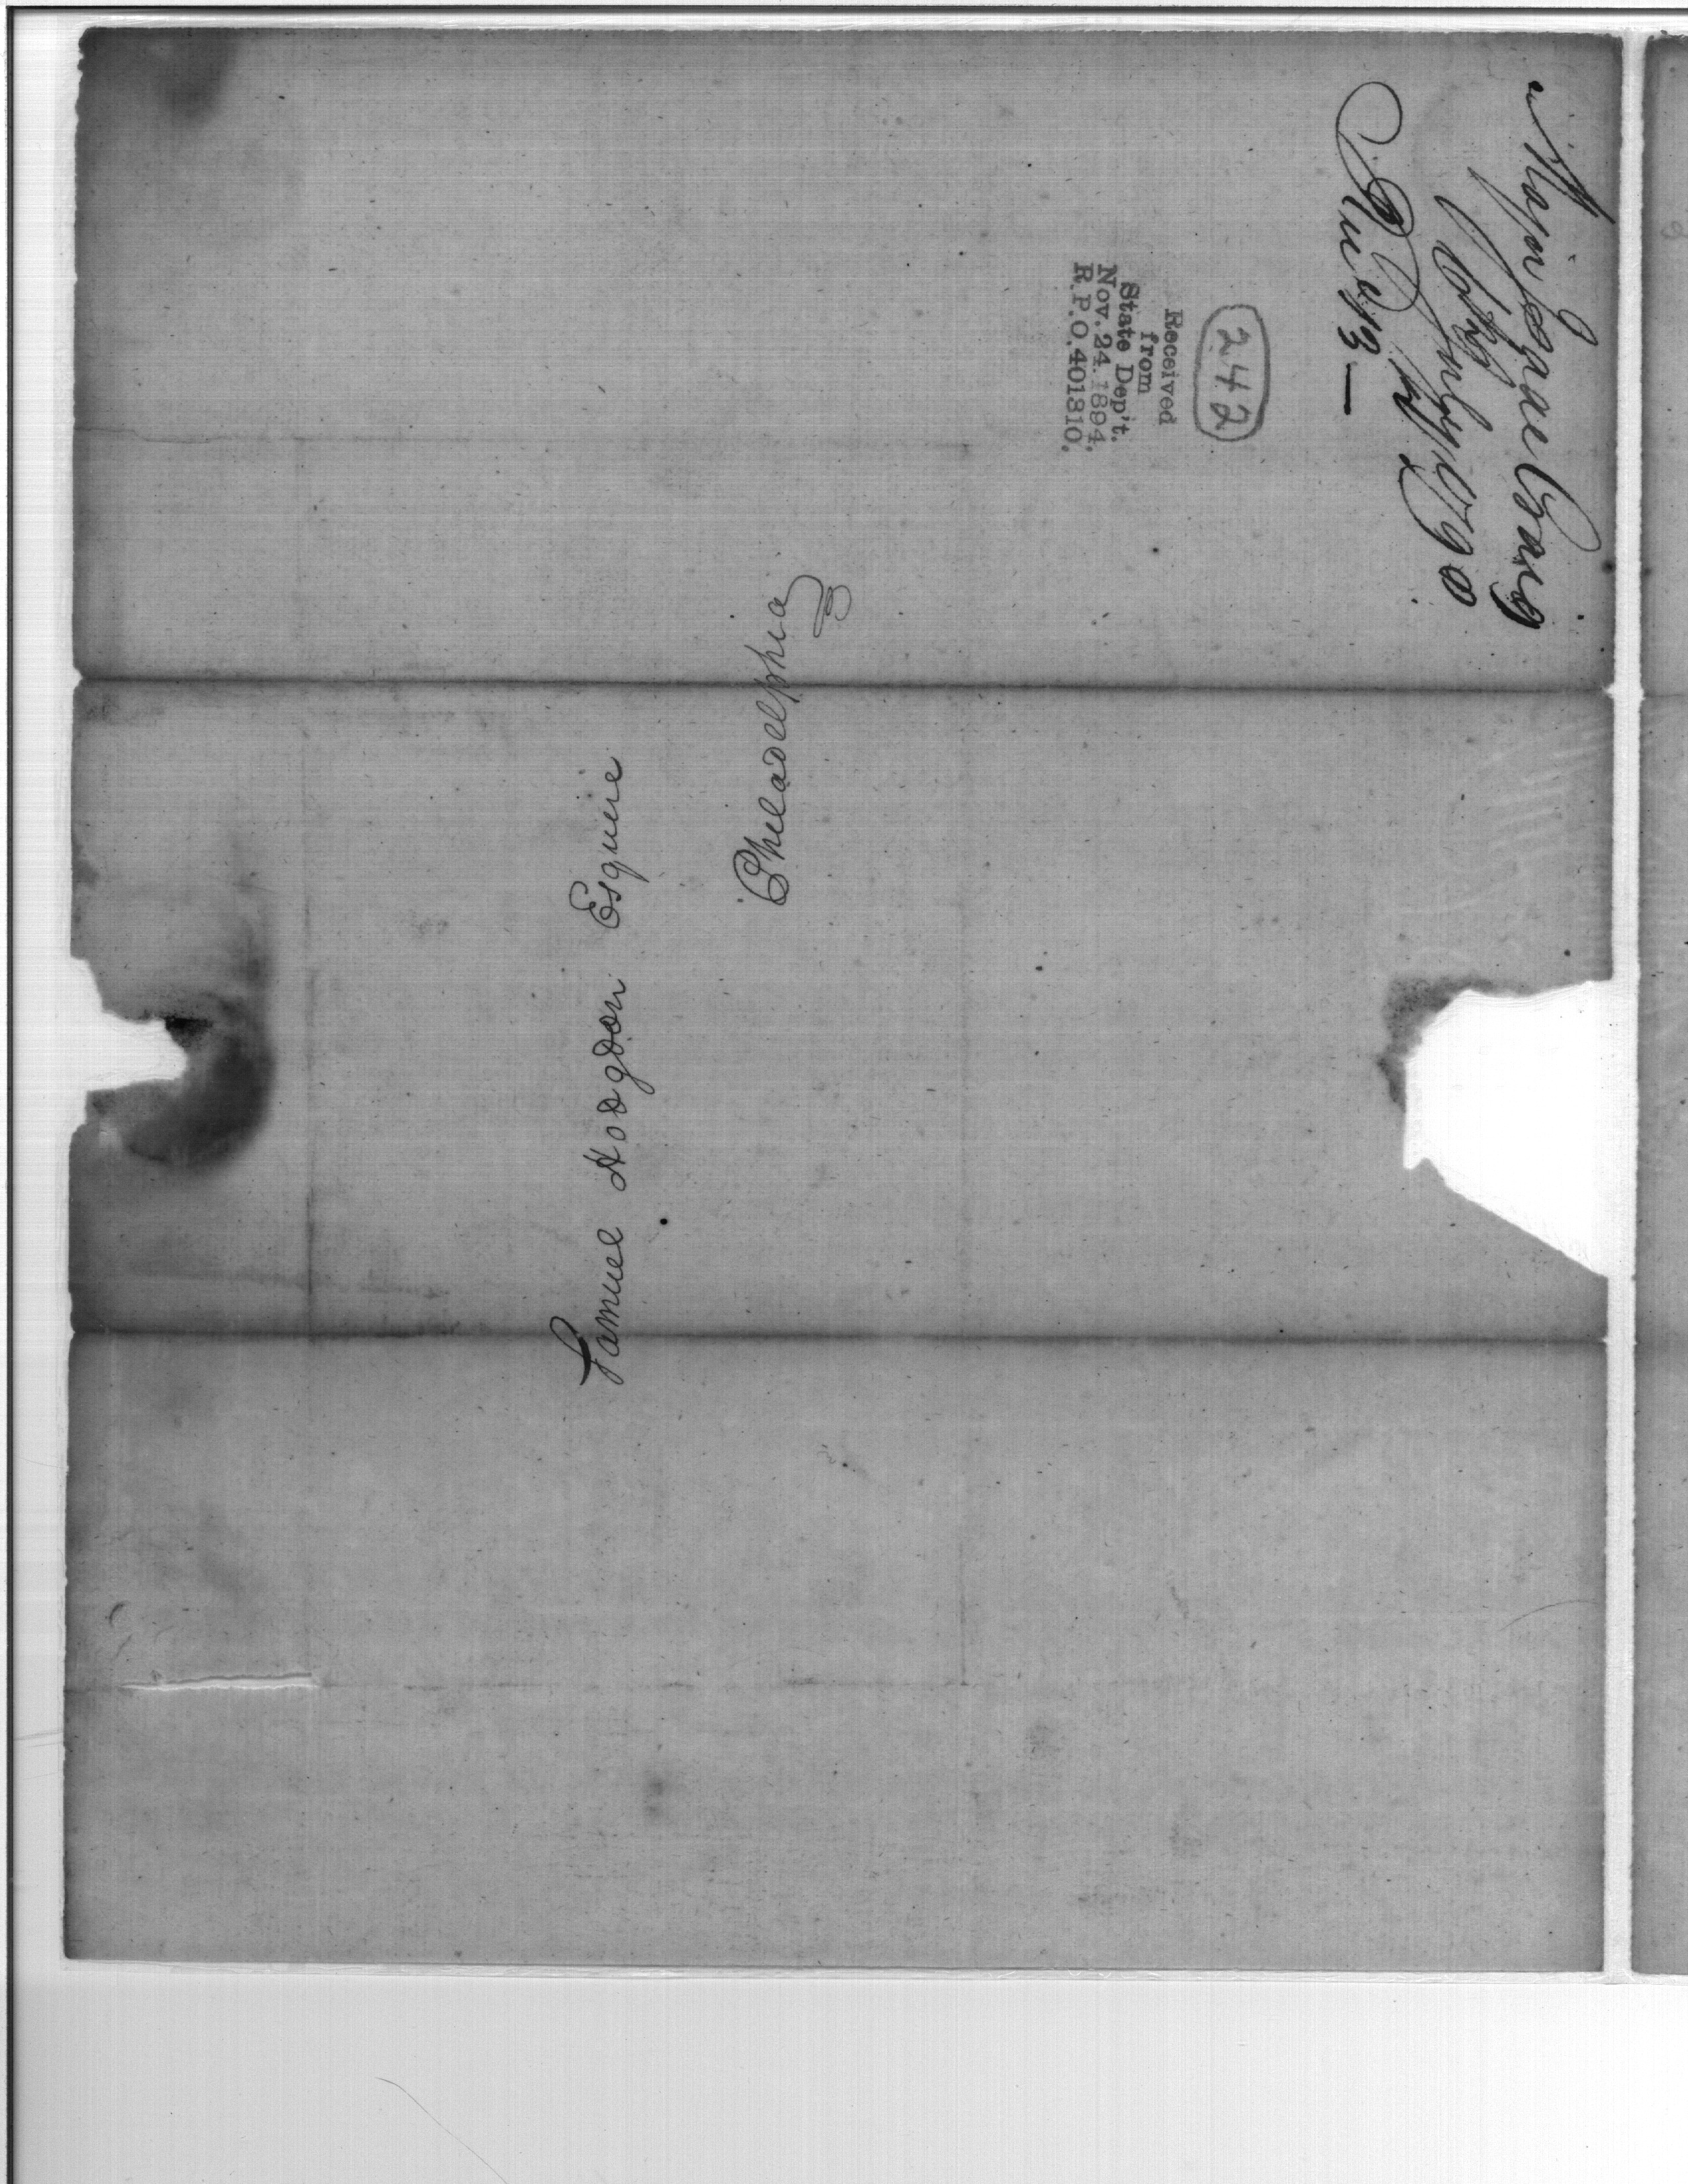 Samuel Hodgdon Esquire
Philadelphia
Major Isaac Craig
July 1790
Rec'd
Aug 13 —
242
Received
from
State Dep't.
Nov. 24. 1894.
R. P. O. 401310.